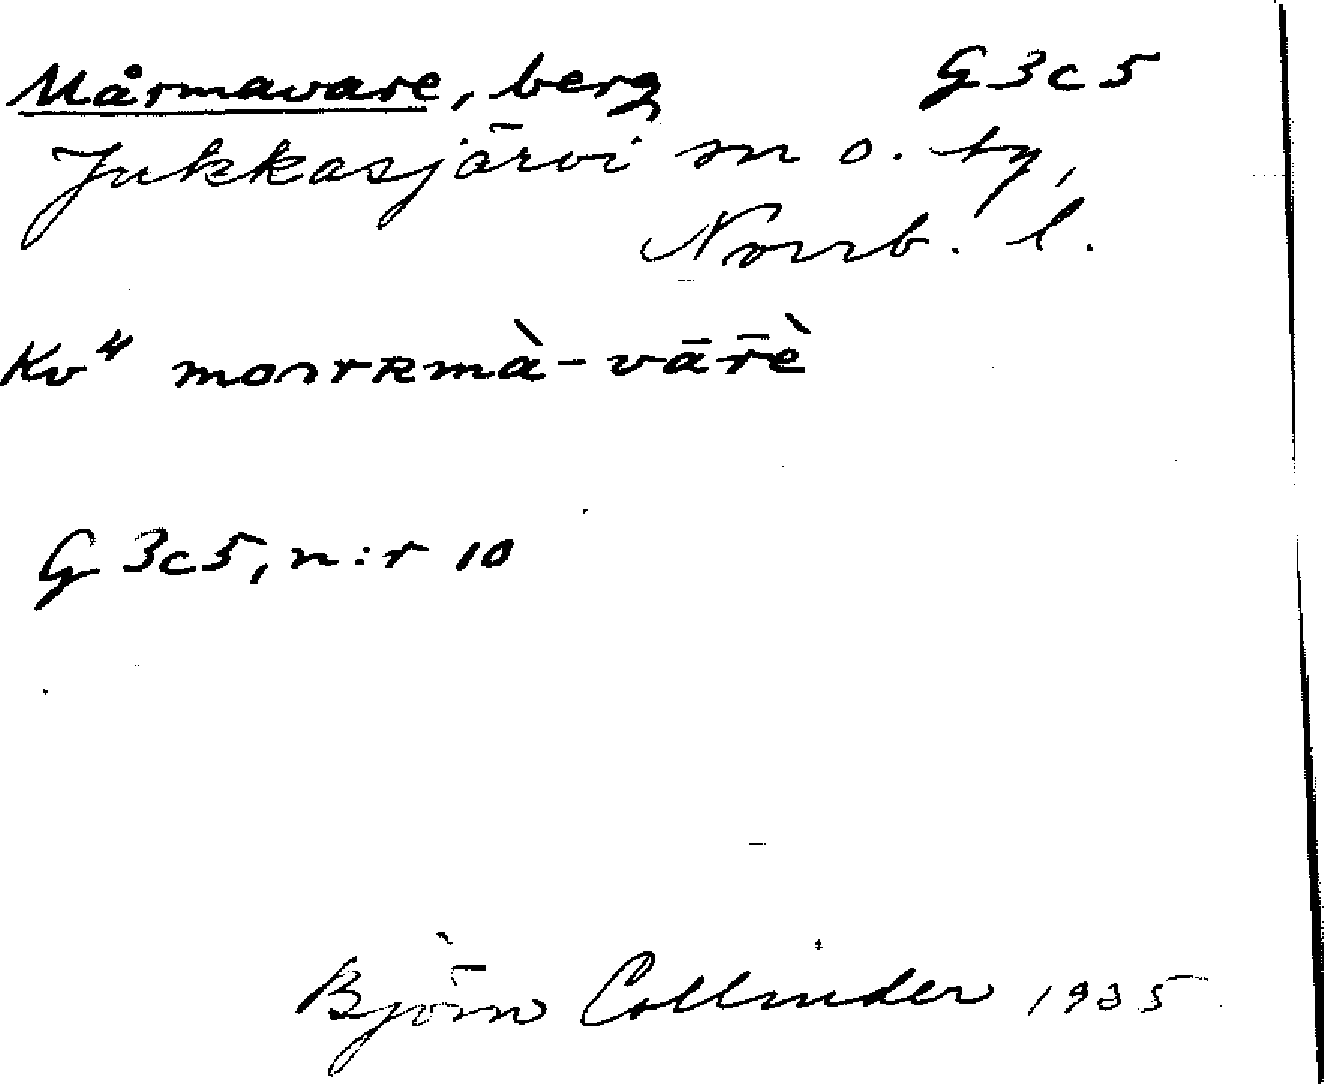 Mårmavare, berg G3c5
Jukkasjärvi sn o. tg,
Norrb. l.
Kv⁴ moɔrʀmà-vār̄è
G3c5, n:r 10
Björn Collinder 1935